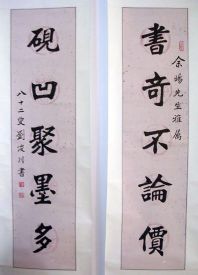 書奇不論價
余暘先生雅屬
硯凹聚墨多
八十二叟劉浚川書